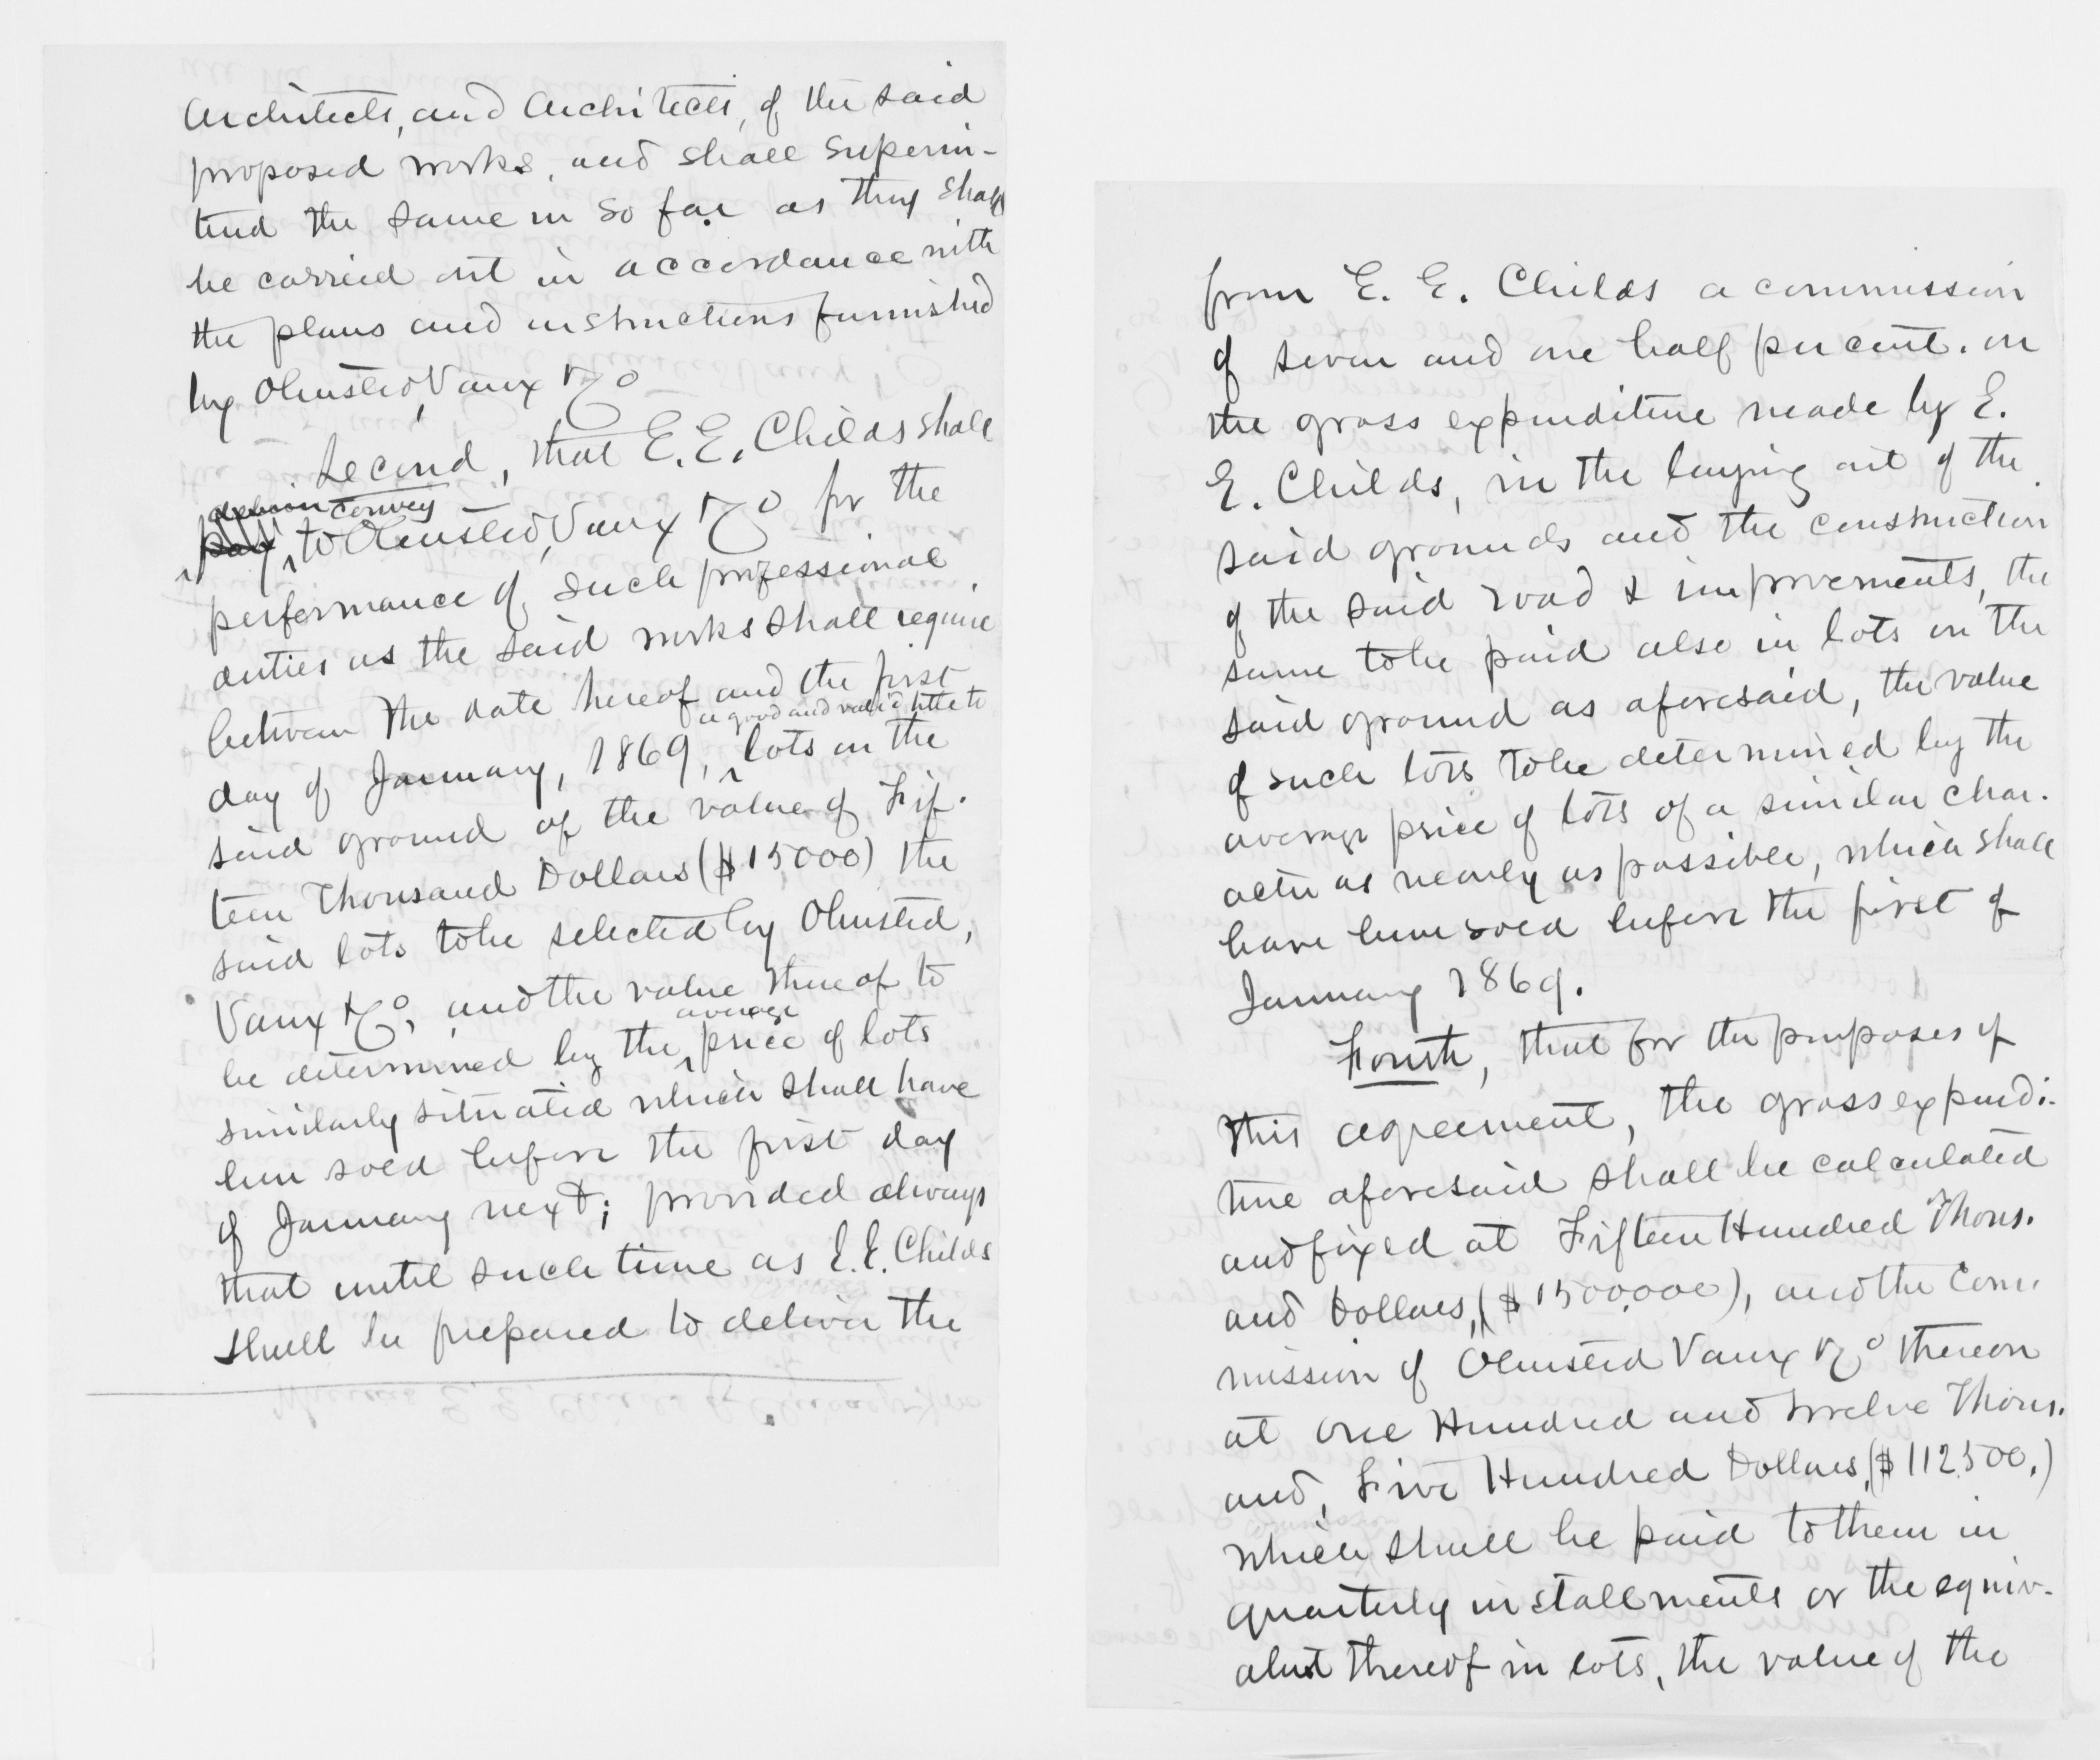 Architects, and Architects, of the said
proposed works, and shall superin-
tend the same in so far as they shall
be carried out in accordance with
the plans and instructions furnished
by Olmsted, Vaux & Co
Second, that E. E. Childs shall
convey
pay to Olmsted, Vaux & Co for the
performance of such professional
duties as the said works shall require
between the date hereof and the first
a good and valid title to
day of January, 1869, lots on the
said ground of the value of Fif-
teen Thousand Dollars ($15000) the
said lots to be selected by Olmsted,
Vaux & Co, and the value thereof to
average
be determined by the price of lots
similarly situated which shall have
been sold before the first day
of January next; provided always
that until such time as E. E. Childs
shall be prepared to deliver the
from E. E. Childs a commission
of seven and one half per cent. on
the gross expenditure made by E.
E. Childs, in the laying out of the
said grounds and the construction
of the said road & improvements, the
same to be paid also in lots on the
said ground as aforesaid, the value
of such lots to be determined by the
average price of lots of a similar char-
acter as nearly as possible, which shall
have been sold before the first of
January 1869.
Fourth, that for the purposes of
this agreement, the gross expendi-
ture aforesaid shall be calculated
and fixed at Fifteen Hundred Thous-
and Dollars, ($1500.000), and the Com-
mission of Olmsted Vaux & Co thereon
at One Hundred and twelve Thous-
and, Five Hundred Dollars, ($112.500.)
which shall be paid to them in
quarterly installments or the equiv-
alent thereof in lots, the value of the